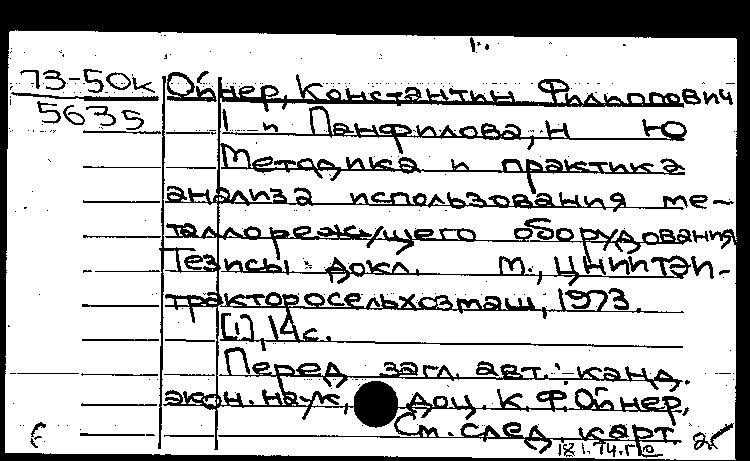 73-50к Ойнер, Константин Филиппович
5635 1 и Панфилова, Н Ю
Методика и практика
анализа использования ме-
таллорежущего оборудования
Тезисы докл. М., ЦНИИТЭИ-
тракторосельхозмаш, 1973.
[1], 14 с.
Перед загл. авт.: канд.
экон. наук, доц. К. Ф. Ойнер,
См. след. карт.